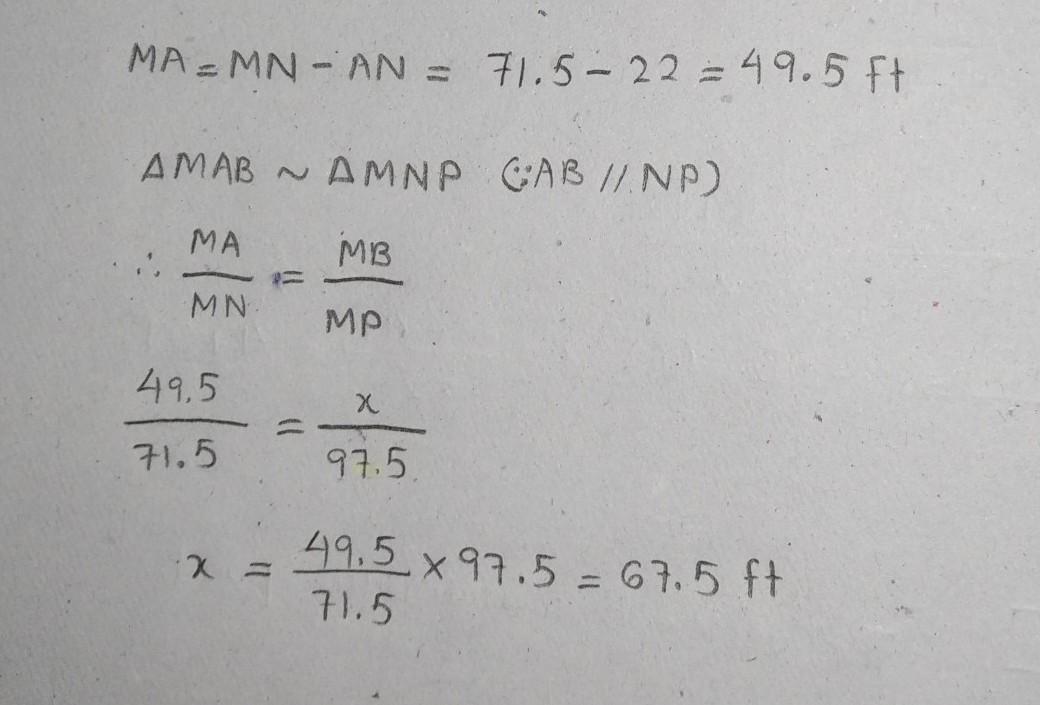 MA = MN - AN = 71.5 - 22 = 49.5 ft
ΔMAB ~ ΔMNP (∵ AB // NP)
∴ MA/MN = MB/MP
49.5/71.5 = x/97.5
x = 49.5/71.5 × 97.5 = 67.5 ft